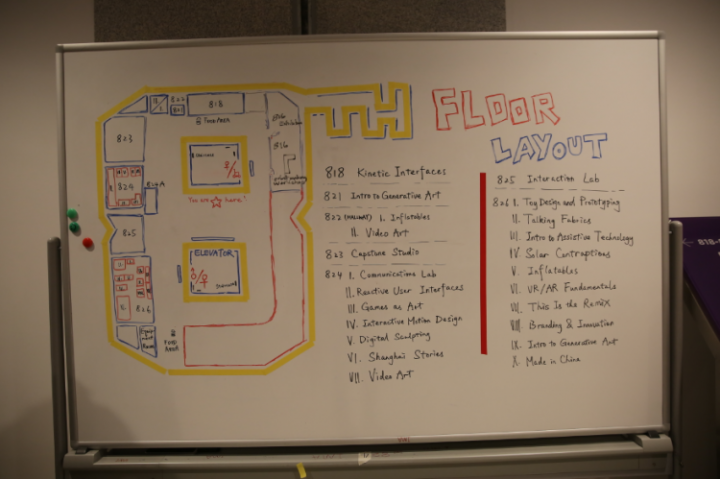 FLOOR
LAYOUT
818
803
816
824
824A
825
826
FOOD AREA
You are here!
ELEVATOR
Staircase
FOOD
AREA
Equip
ment
Room
818 Kinetic Interfaces
821 Intro to Generative Art
I. Inflatables
II. Video Art
823 Capstone Studio
824 I. Communications Lab
II. Reactive User Interfaces
III. Games as Art
IV. Interactive Motion Design
V. Digital Sculpting
VI. Shanghai Stories
VII. Video Art
825 Interaction Lab
826 I. Toy Design and Prototyping
II. Talking Fabrics
III. Intro to Assistive Technology
IV. Solar Contraptions
V. Inflatables
VI. VR/AR Fundamentals
VII. This Is the Remix
VIII. Branding & Innovation
IX. Intro to Generative Art
X. Made in China
818-